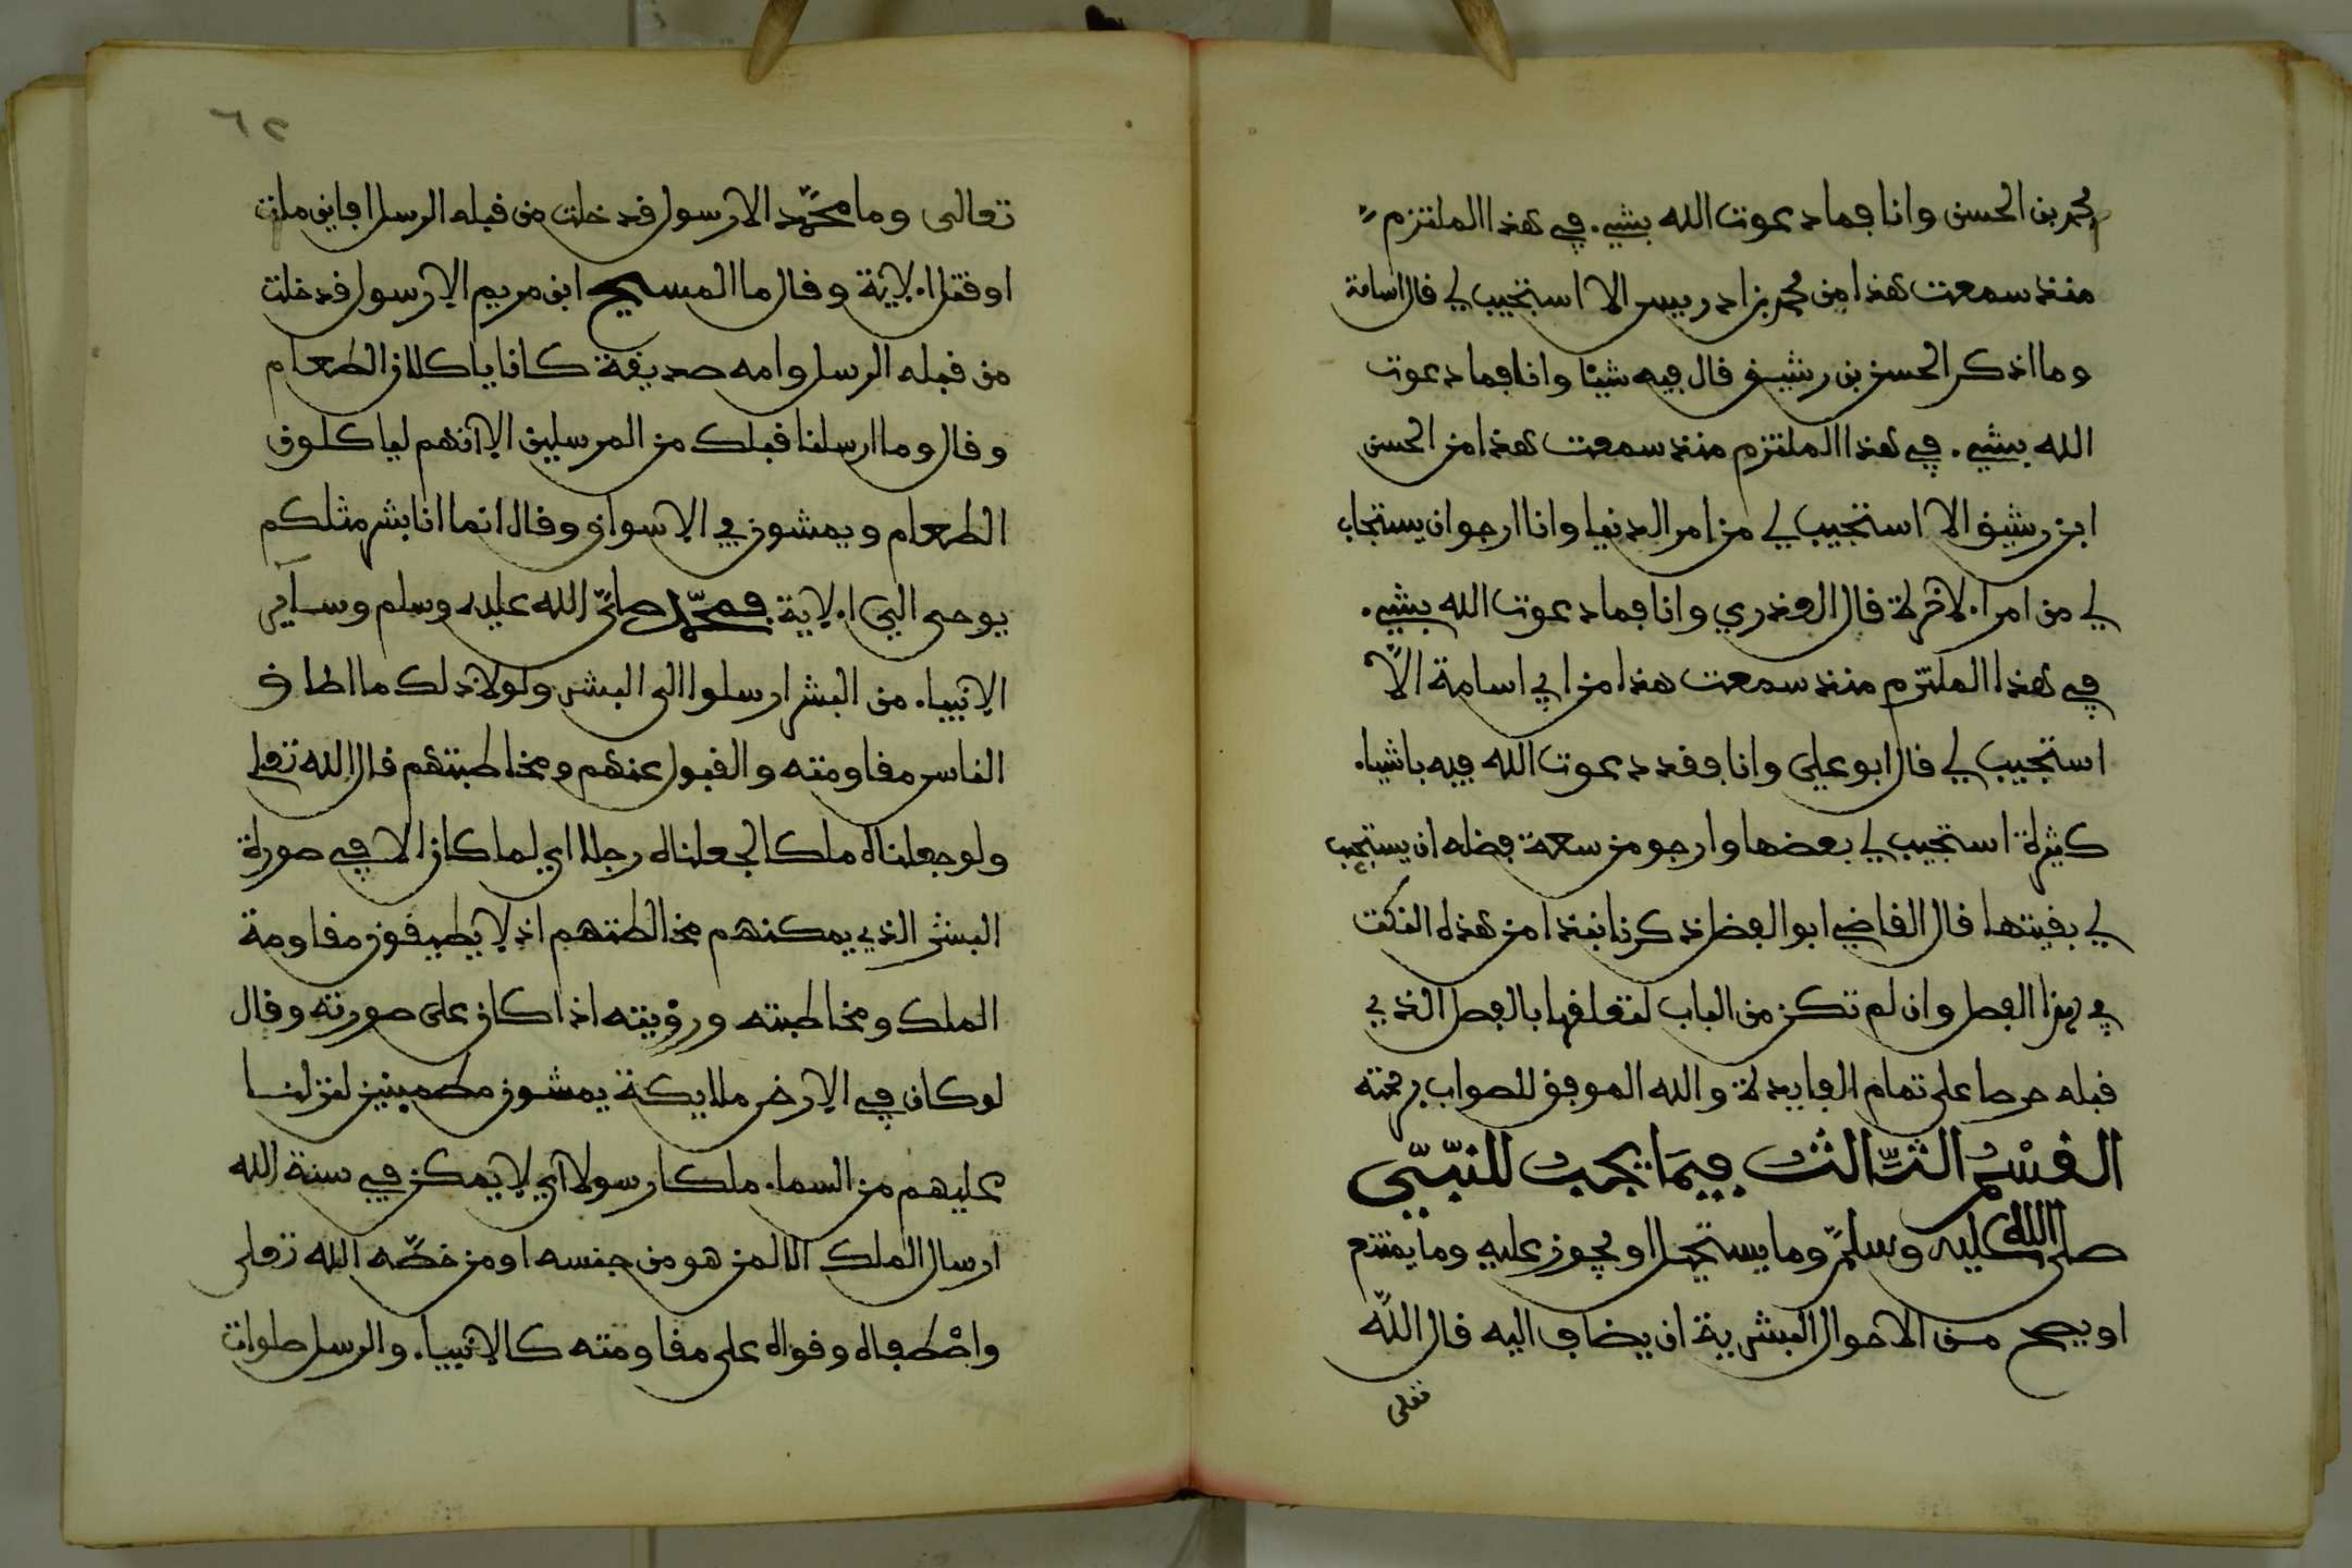 محمد بن الحسن وانا فما دعوت الله بشيء في هذا الملتزم
منذ سمعت هذا من محمد بن ادريس الا استجيب لي قال اسامة
وما اذكر الحسن بن رشيق قال فيه شيئا وانا فما دعوت
الله بشيء في هذا الملتزم منذ سمعت هذا من الحسن
ابن رشيق الا استجيب لي من امر الدنيا وانا ارجو ان يستجاب
لي من امر الاخرة قال العذري وانا فما دعوت الله بشيء
في هذا الملتزم منذ سمعت هذا من ابي اسامة الا
استجيب لي قال ابو علي وانا فقد دعوت الله فيه باشياء
كثيرة استجيب لي بعضها وارجو من سعة فضله ان يستجيب
لي بقيتها قال القاضي ابو الفضل ذكرنا نبذا من هذه النكت
في هذا الفصل وان لم تكن من الباب لتعلقها بالفصل الذي
قبله حرصا على تمام الفايدة والله الموفق للصواب برحمته
القسم الثالث فيما يجب للنبي
صلى الله عليه وسلم وما يستحيل او يجوز عليه وما يمتنع
او يصح من الاحوال البشرية ان يضاف اليه قال الله
تعلى
٦٢
تعالى وما محمد الا رسول قد خلت من قبله الرسل افاين مات
او قتل الاية وقال ما المسيح ابن مريم الا رسول قد خلت
من قبله الرسل وامه صديقة كانا ياكلان الطعام
وقال وما ارسلنا قبلك من المرسلين الا انهم لياكلون
الطعام ويمشون في الاسواق وقال انما انا بشر مثلكم
يوحى الي الاية فمحمد صلى الله عليه وسلم وساير
الانبياء من البشر ارسلوا الى البشر ولولا ذلك ما اطاق
الناس مقاومته والقبول عنهم ومخاطبتهم قال الله تعلى
ولو جعلناه ملكا لجعلناه رجلا اي لما كان الا في صورة
البشر الذي يمكنهم مخالطتهم اذ لا يطيقون مقاومة
الملك ومخاطبته ورؤيته اذا كان على صورته وقال
لو كان في الارض ملايكة يمشون مطمينين لنزلنا
عليهم من السماء ملكا رسولا اي لا يمكن في سنة الله
ارسال الملك الا لمن هو من جنسه او من خصه الله تعلى
واصطفاه وقواه على مقاومته كالانبياء والرسل صلوات